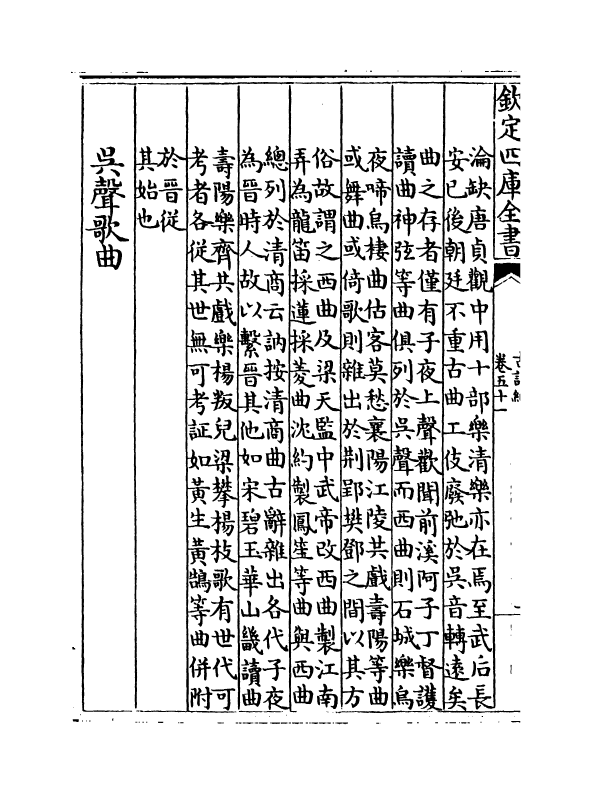 欽定四庫全書
卷五十一
淪缺唐貞觀中用十部樂清樂亦在焉至武后長
安已後朝廷不重古曲工伎廢弛於吳音轉遠矣
曲之存者僅有子夜上聲歡聞前溪阿子丁督護
讀曲神弦等曲俱列於吳聲而西曲則石城樂烏
夜啼烏棲曲估客莫愁襄陽江陵共戲壽陽等曲
或舞曲或倚歌則雜出於荆郢樊鄧之間以其方
俗故謂之西曲及梁天監中武帝改西曲製江南
弄為龍笛採蓮採菱曲沈約製鳳笙等曲與西曲
總列於清商云訥按清商曲古辭雜出各代子夜
為晉時人故以繫晉其他如宋碧玉華山畿讀曲
壽陽樂齊共戲樂楊叛兒梁攀楊枝歌有世代可
考者各從其世無可考証如黃生黃鵠等曲併附
於晉從
其始也
吳聲歌曲